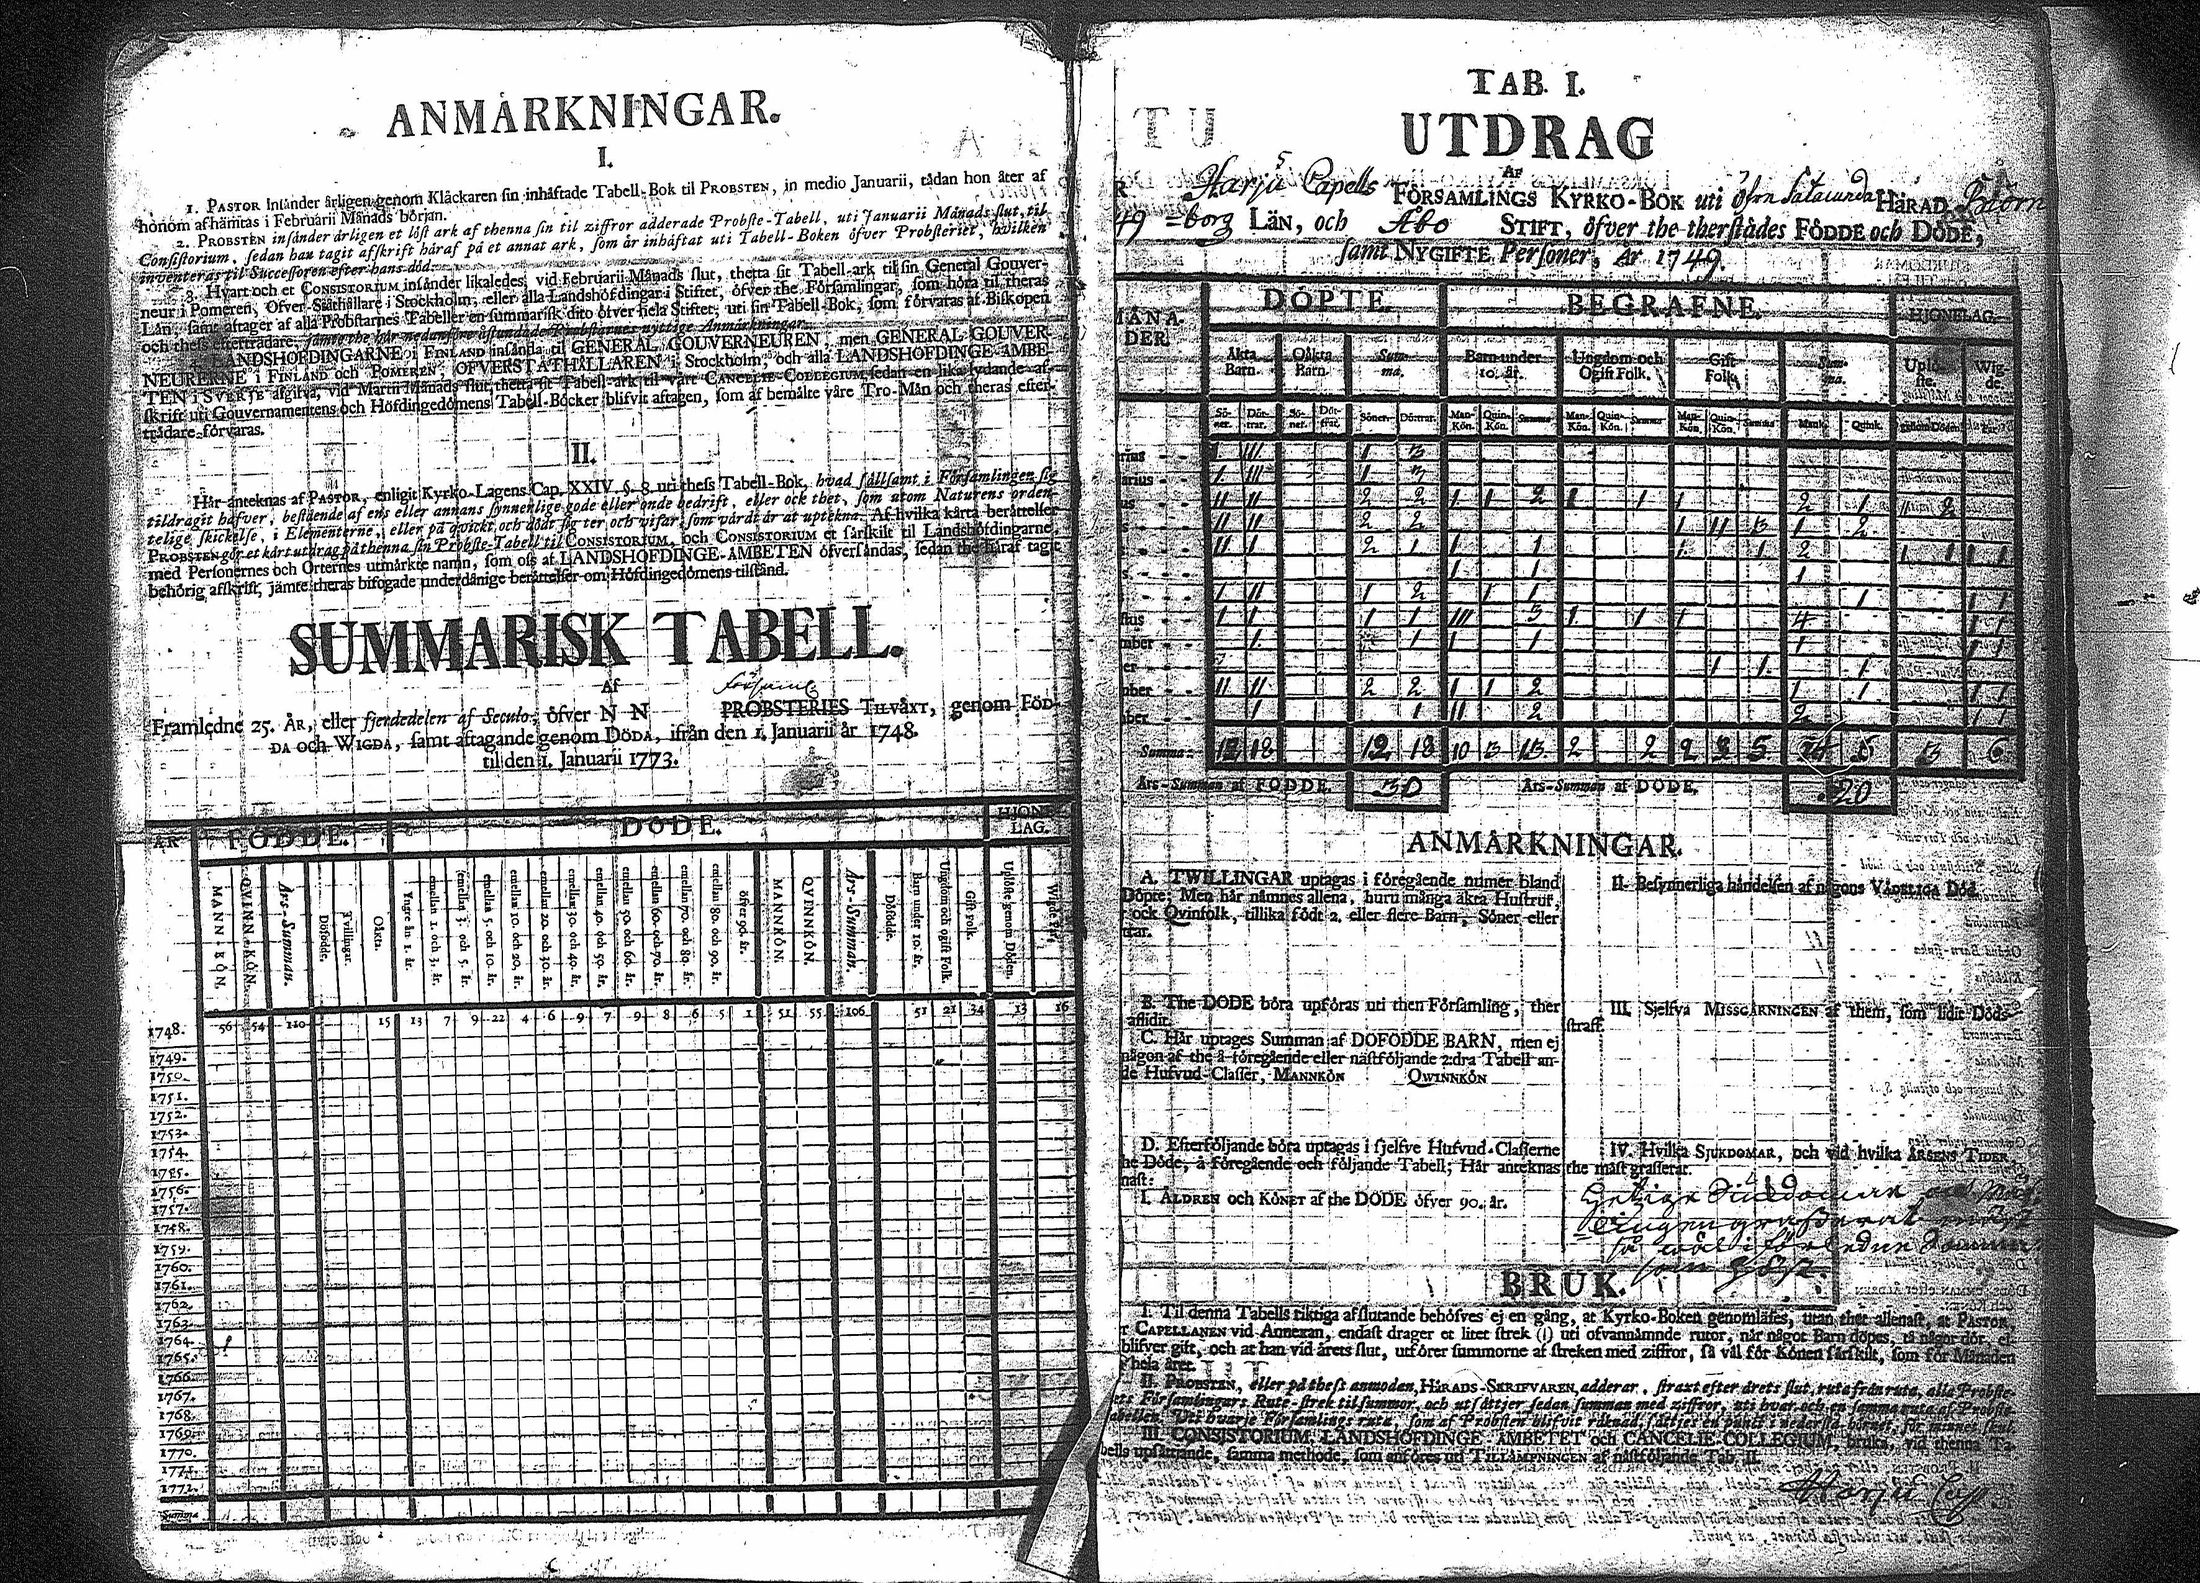 ANMÄRKNINGAR.
I.
1. PASTOR insänder årligen genom Klåckaren sin inhäftade Tabell-Bok til PROBSTEN, in medio Januarii, tådan hon åter af
honom afhämtas i Februarii Månads början.
2. PROBSTEN insänder årligen et löst ark af thenna sin til ziffror adderade Probste-Tabell, uti Januarii Månads slut, til
Consistorium, sedan han tagit afskrift häraf på et annat ark, som är inhäftat uti Tabell-Boken öfver Probsteriet, hvilken
inventeras til Successoren efter hans död.
3. Hvart och et CONSISTORIUM insänder likaledes, vid Februarii Månads slut, thetta sit Tabell-ark til sin General Gouver-
neur i Pomeren, Öfver-Ståthållare i Stockholm, eller alla Landshöfdingar i Stiftet, öfver the Församlingar, som höra til theras
Län, samt aftager af alla Probstarnes Tabeller en summarisk dito öfver hela Stiftet, uti sin Tabell-Bok, som förvaras af Biskopen
och thess efterträdare, jämte the här nedanföre åstundade Probstarnes nyttige Anmärkningar.
LANDSHÖFDINGARNE i FINLAND insända til GENERAL GOUVERNEUREN, men GENERAL GOUVER-
NEURERNE i FINLAND och POMEREN, ÖFVERSTÅTHÅLLAREN i Stockholm, och alla LANDSHÖFDINGE-ÄMBE-
TEN i SVERJE afgifva, vid Martii Månads slut, thetta sit Tabell-ark til vårt CANCELIE-COLLEGIUM, sedan en lika lydande af-
skrift uti Gouvernamentens och Höfdingedömens Tabell-Böcker blifvit aftagen, som af bemälte våre Tro-Män och theras efter-
trädare förvaras.
II.
Här anteknas af PASTOR, enligit Kyrko-Lagens Cap. XXIV. §. 8. uti thess Tabell-Bok, hvad sällsamt i Församlingen sig
tildragit hafver, bestående af ens eller annans synnerlige gode eller onde bedrift, eller ock thet, som utom Naturens orden-
telige skickelse, i Elementerne, eller på qvickt och dödt sig ter och visar, som värdt är at uptekna. Af hvilka korta berättelser
PROBSTEN gör et kort utdrag på thenna sin Probste-Tabell til CONSISTORIUM, och CONSISTORIUM et särskilt til Landshöfdingarne,
med Personernes och Orternes utmärkte namn, som oss af LANDSHÖFDINGE-ÄMBETEN öfversändas, sedan the häraf tagit
behörig afskrift, jämte theras bifogade underdånige berättelser om Höfdingedömens tilstånd.
SUMMARISK TABELL.
Af
Framledne 25. ÅR, eller fjerdedelen af Seculo, öfver N N PROBSTERIES TILVÄXT, genom FÖD-
DA och WIGDA, samt aftagande genom DÖDA, ifrån den 1. Januarii år 1748.
til den 1. Januarii 1773.
ÅR FÖDDE. DÖDE. HJONE-LAG.
MANN-KÖN. QVINN-KÖN. Års-Summan. Döfödde. Tvillingar. Oäkta. Yngre än 1. år. emellan 1. och 3. år. emellan 3. och 5. år. emellan 5. och 10. år. emellan 10. och 20. år. emellan 20. och 30. år. emellan 30. och 40. år. emellan 40. och 50. år. emellan 50. och 60. år. emellan 60. och 70. år. emellan 70. och 80. år. emellan 80. och 90. år. öfver 90. år. MANNKÖN. QVINNKÖN. Års-Summan. Döfödde. Barn under 10. år. Ungdom och ogift Folk. Gift folk. Uplöste genom Döden. Wigde
1748. 56 54 110 15 13 7 9 22 4 6 9 7 9 8 6 5 1 51 55 106 51 21 34 13 16
1749.
1750.
1751.
1752.
1753.
1754.
1755.
1756.
1757.
1758.
1759.
1760.
1761.
1762.
1763.
1764.
1765.
1766.
1767.
1768.
1769.
1770.
1771.
1772.
Summa
TAB. I.
UTDRAG
AF
Harju Capells FÖRSAMLINGS KYRKO-BOK uti öfre Satacunda HÄRAD Biörn
=borg LÄN, och Åbo STIFT, öfver the therstädes FÖDDE och DÖDE,
samt NYGIFTE Personer, År 1749.
MÅNA-DER. DÖPTE. BEGRAFNE. HJONELAG.
Äkta Barn. Oäkta Barn. Summa. Barn under 10. år. Ungdom och Ogift Folk. Gift Folk. Summa. Uplöste. Wigde.
Söner. Döttrar. Söner. Döttrar. Söner. Döttrar. Man-Kön. Quin-Kön. Summa Man-Kön. Quin-Kön. Summa Man-Kön. Quin-Kön. Summa Mank. Quink. genom Döden. Par.
rius I III 1 3
arius I III 1 3
us II II 2 2 I I 2 I 1 I 2 1 II 2
s II II 2 2 I II 3 1 2
II I 2 1 I 1 I 1 2 I 1 I 1
s I 1 1
I II 1 2 I 1 1 I 1
stus I I 1 1 III 3 I 1 I 4 I 1
mber I 1 I 1 1 I 1
er I 1 1
mber II II 2 2 I I 2 1 1 I 1
ber I 1 II 2 2 I 1
Summa: 12 18 12 18 10 3 13 2 2 2 3 5 5 3 6
Års-Summan af FÖDDE. 30 Års-Summan af DÖDE. 20
ANMÄRKNINGAR.
A. TWILLINGAR uptagas i föregående numer bland
Döpte; Men här nämnes allena, huru många äkta Hustrur,
ock Qvinfolk, tillika födt 2, eller flere Barn, Söner eller
trar.
B. The DÖDE böra upföras uti then Församling, ther
aflidit.
C. Här uptages Summan af DÖFÖDDE BARN, men ej
någon af the å föregående eller nästföljande 2:dra Tabell an-
de Hufvud-Classer, MANNKÖN QWINNKÖN
D. Efterföljande böra uptagas i sjelfve Hufvud-Classerne
he Döde, å föregående och följande Tabell; Här anteknas
nast:
I. ÅLDREN och KÖNET af the DÖDE öfver 90. år.
II. Besynnerliga händelsen af någons VÅDELIGA Död.
III. Sjelfva MISSGÄRNINGEN af them, som lidit Döds-
straff.
IV. Hvilka SJUKDOMAR, och vid hvilka ÅRSENS TIDER
the mäst grasserat.
BRUK.
I. Til denna Tabells riktiga afslutande behöfves ej en gång, at Kyrko-Boken genomläses, utan thet allenast, at PASTOR,
r CAPELLANEN vid Annexan, endast drager et litet strek (I) uti ofvannämnde rutor, när något Barn döpes, tå någor dör, el-
blifver gift, och at han vid årets slut, utförer summorne af streken med ziffror, så väl för Könen särskilt, som för Månaden
hela året.
II. PROBSTEN, eller på thess anmodan, HÄRADS-SKRIFVAREN, adderar, straxt efter årets slut, ruta från ruta, alla Probste-
III. CONSISTORIUM, LANDSHÖFDINGE-ÄMBETET och CANCELIE-COLLEGIUM, bruka, vid thenna Ta-
bells upsättjande, samma methode, som anföres uti TILLÄMPNINGEN af nästföljande Tab. II.
Harju Cap